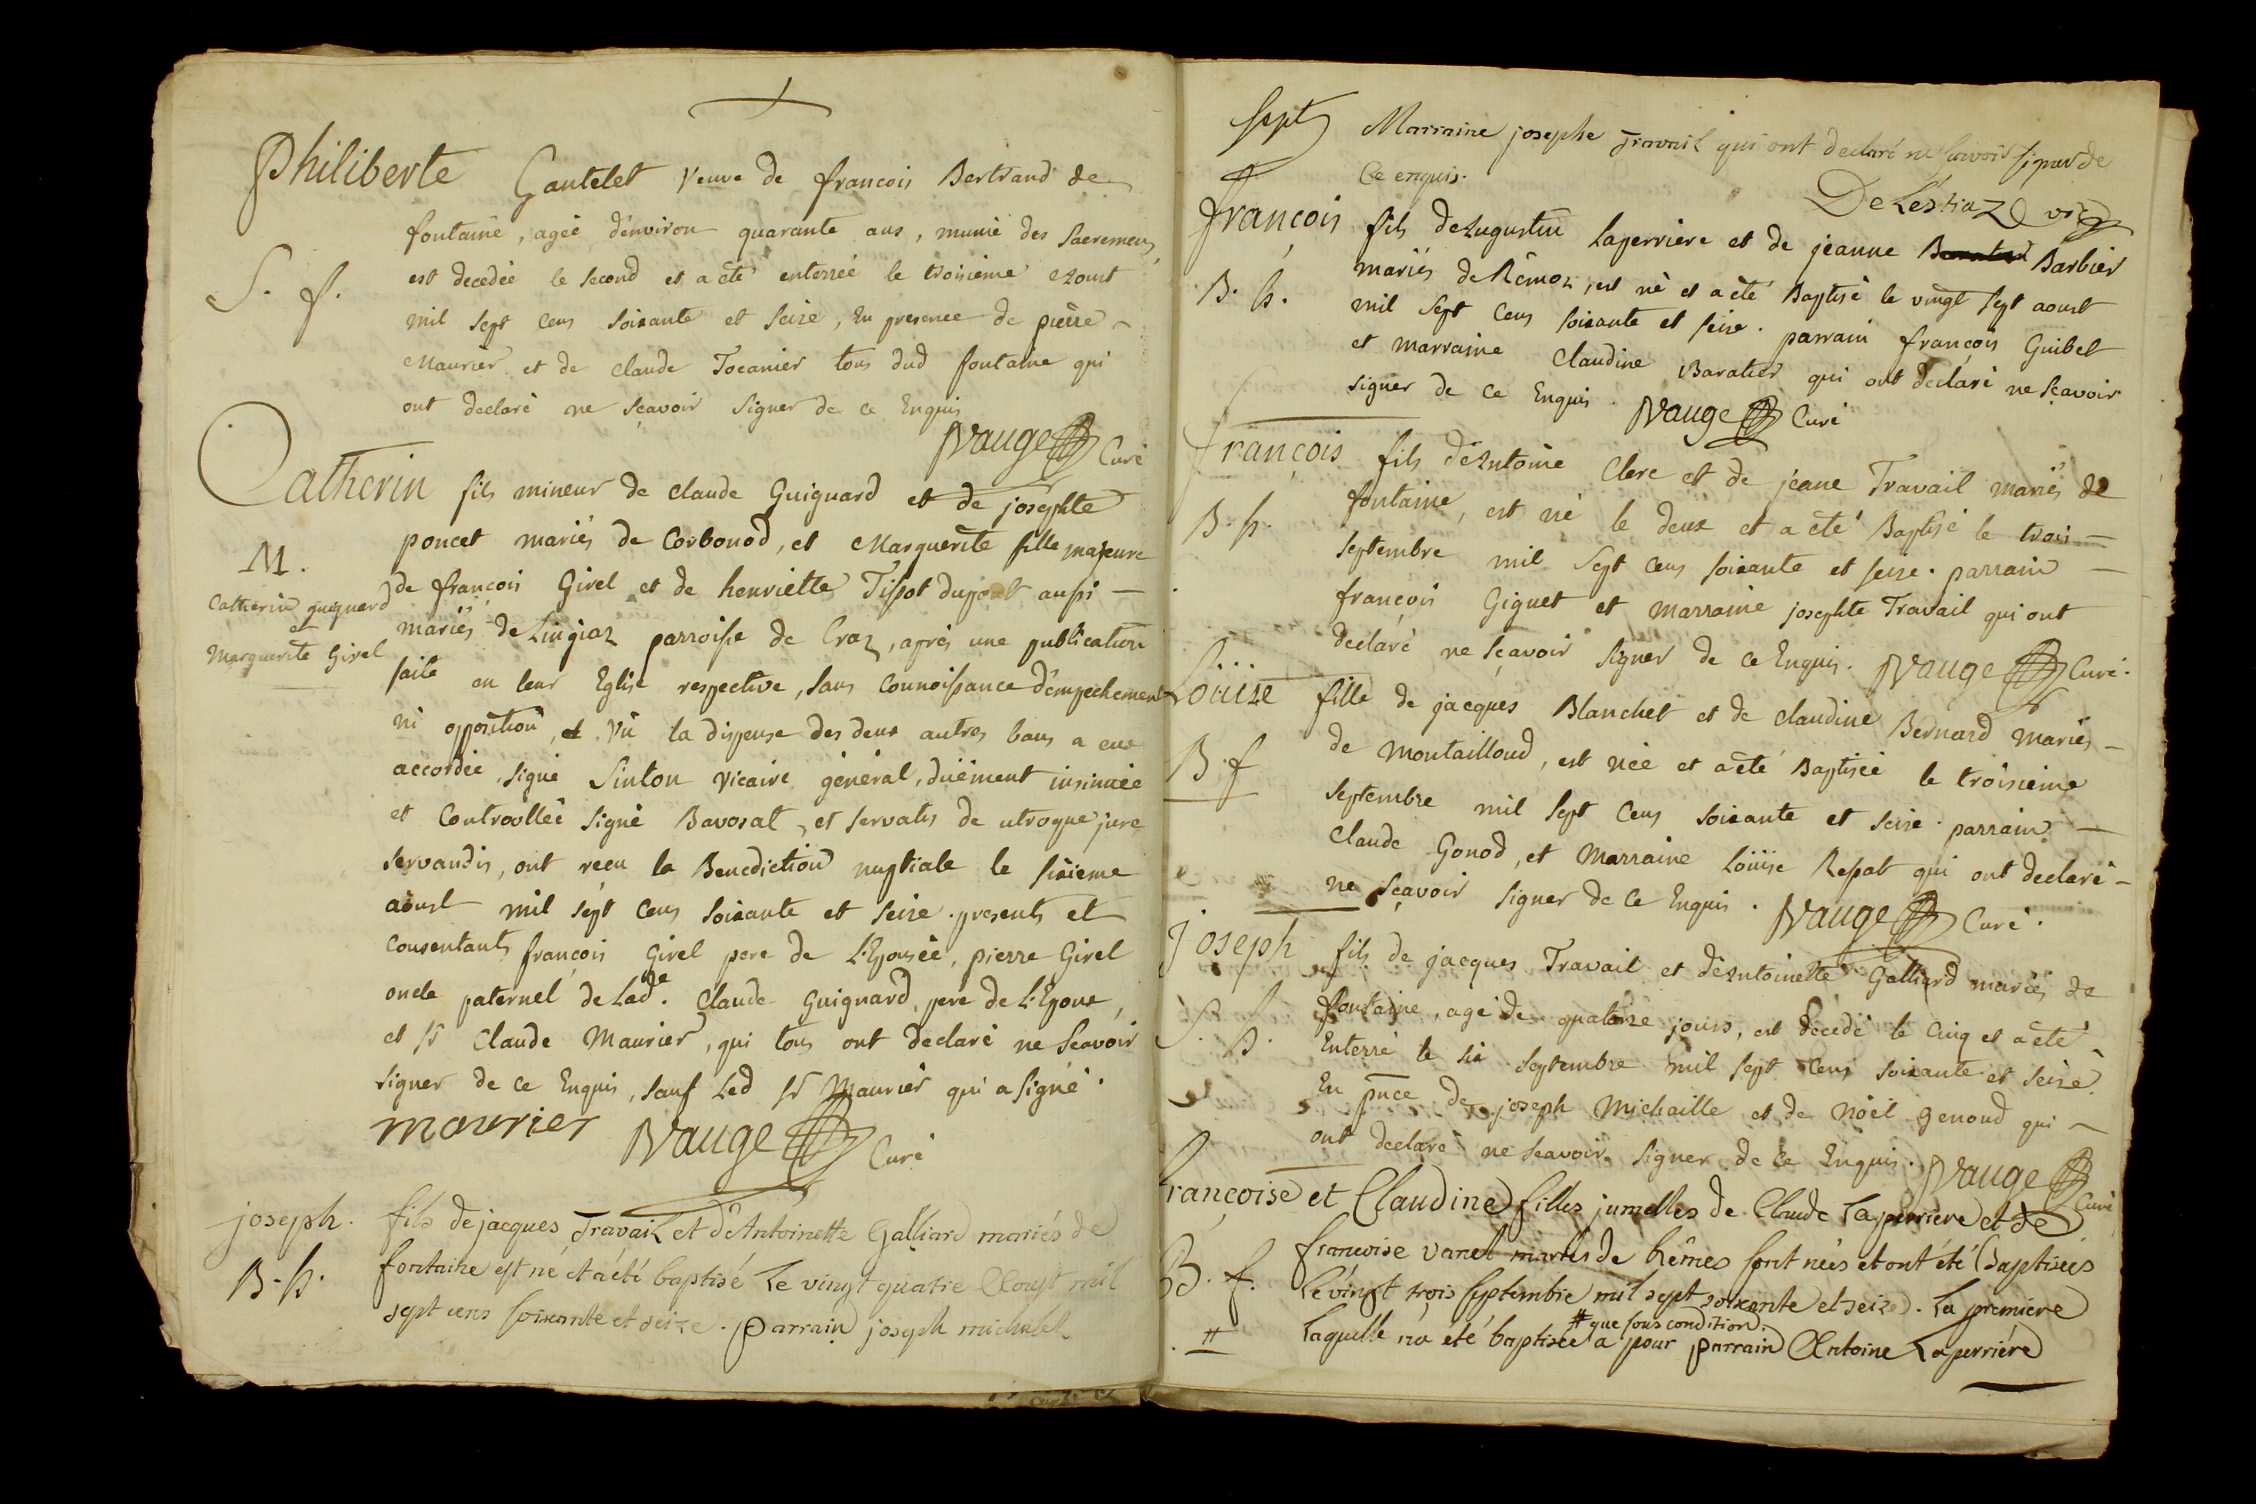 Philiberte Gantelet veuve de francois Bertrand de
fontaine, agée d'environ quarante ans, munie des sacremens,
S. f.
est decedée le second et a eté enterrée le troisieme aoust
mil sept cens soixante et seize, En presence de pierre
Maurier et de claude Tocanier tous dud fontaine qui
ont declaré ne sçavoir signer de ce Enquis
Vauge Curé
Catherin fils mineur de claude Guignard et de josephte
poncet mariés de Corbonod, et Marguerite fille majeure
M.
de françois Girel et de henriette Tissot dupont aussi
Catherin guignard
et
Marguerite Girel
mariés de Lingiaz parroisse de Craz, après une publication
faite en leur Eglise respective, sans connoissance d'empechement
ni opposition, et vû la dispense des deux autres bans a eux
accordée, signé Sinton vicaire général, duëment insinuée
et Controollée signé Bavozat, et servatis de utroque jure
servandis, ont reçu la Benediction nuptiale le sixieme
aoust mil sept cens soixante et seize. presents et
consentants françois Girel pere de L'Epousée, pierre Girel
oncle paternel de Lade. Claude Guignard, pere de L'Epoux,
et sr Claude Maurier, qui tous ont declaré ne sçavoir
signer de ce Enquis, sauf Led sr Maurier qui a signé.
maurier Vauge Curé
joseph. fils de jacques Travail et d'Antoinette Galliard mariés de
B. h. fontaine est né et a été baptisé Le vingt quatre Aoust mil
sept cens soixante et seize. parrain joseph michalet
sept Marraine josephe Travail qui ont declaré ne scavoir signer de
Ce enquis.
De Léstiaz vic
françois fils d'augustin Laperriere et de jeanne Barbier
B. h. mariés de Rémoz, est né et a été Baptisé le vingt sept aoust
mil sept cens soixante et seize. parrain françois Guibet
et marraine Claudine Baratier qui ont declaré ne sçavoir
signer de ce Enquis. Vauge Curé
françois fils d'antoine Clerc et de jeane Travail mariés de
B. h. fontaine, est né le deux et a été Baptisé le trois
septembre mil sept cens soixante et seize. parrain
françois Giguet et marraine josephte Travail qui ont
declaré ne sçavoir signer de ce Enquis. Vauge Curé.
Loüise fille de jacques Blanchet et de claudine Bernard mariés
B. f de montailloud, est née et a été Baptisée le troisieme
septembre mil sept cens soixante et seize. parrain
Claude Gonod, et Marraine Loüise Repat qui ont declaré
ne sçavoir signer de ce Enquis. Vauge Curé.
joseph fils de jacques Travail et d'antoinette Galliard mariés de
S. h. fontaine, agé de quatorze jours, est decedé le cinq et a été
Enterré le six septembre mil sept cens soixante et seize
En pnce de joseph Michaille et de Nöel genoud qui
ont declaré ne sçavoir signer de ce Enquis. Vauge Curé
françoise et Claudine filles jumelles de Claude Laperriere et de
B. f. francoise vanel mariés de hêmes sont nées et ont été Baptisées
Le vingt trois septembre mil sept soixante et seize. La premiere
# que sous condition.
# Laquelle n'a eté baptisée a pour parrain Antoine Laperriére